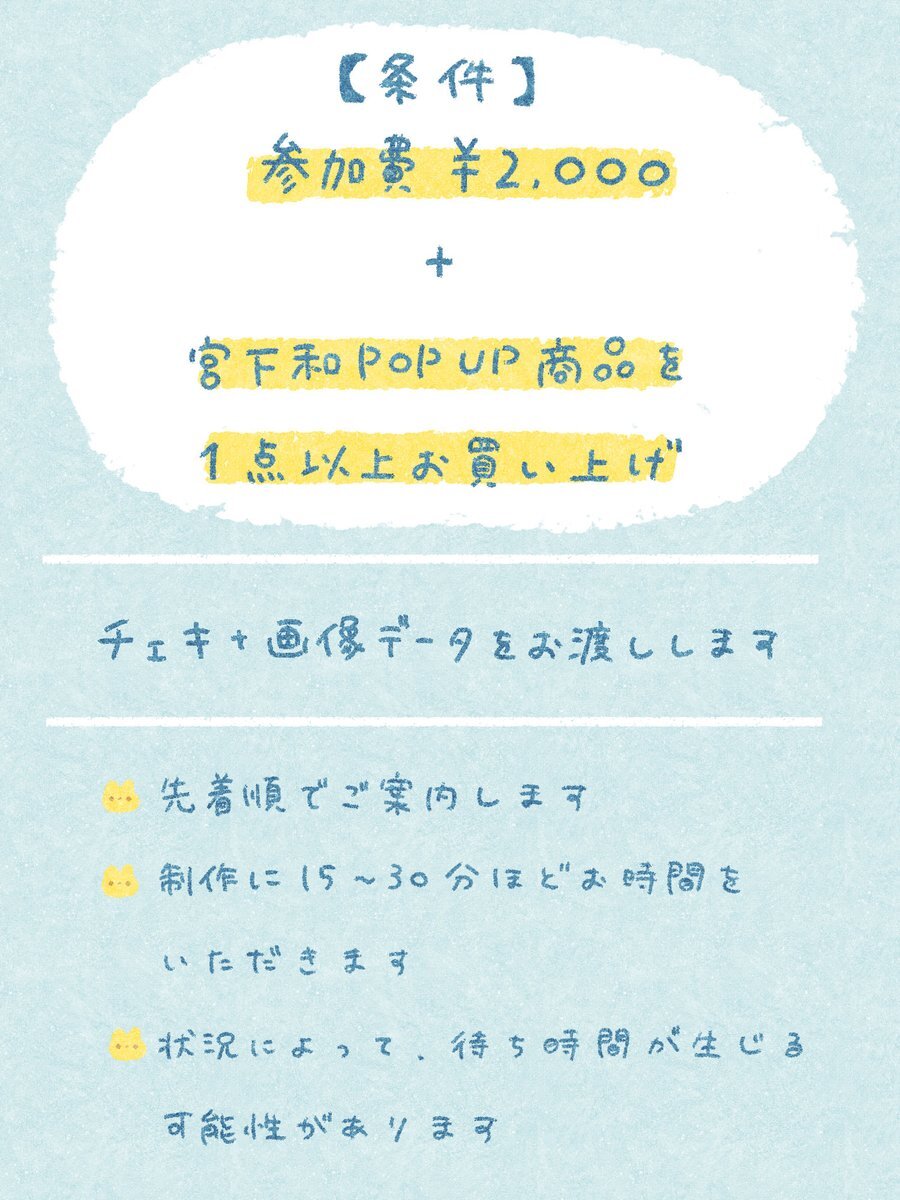 【条件】
参加費 ¥2,000
+
宮下和POP UP商品を
1点以上お買い上げ
チェキ+画像データをお渡しします
先着順でご案内します
制作に15~30分ほどお時間を
いただきます
状況によって、待ち時間が生じる
可能性があります